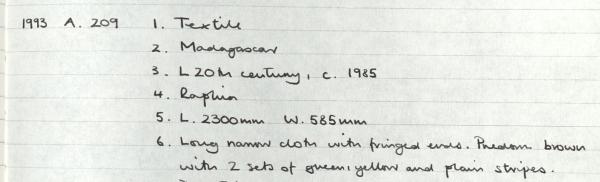 1993 A. 209 1. Textile
2. Madagascar
3. L 20th century, c. 1985
4. Raphia
5. L. 2300mm W. 585mm
6. Long narrow cloth with fringed ends. Predom. brown
with 2 sets of green, yellow and plain stripes.